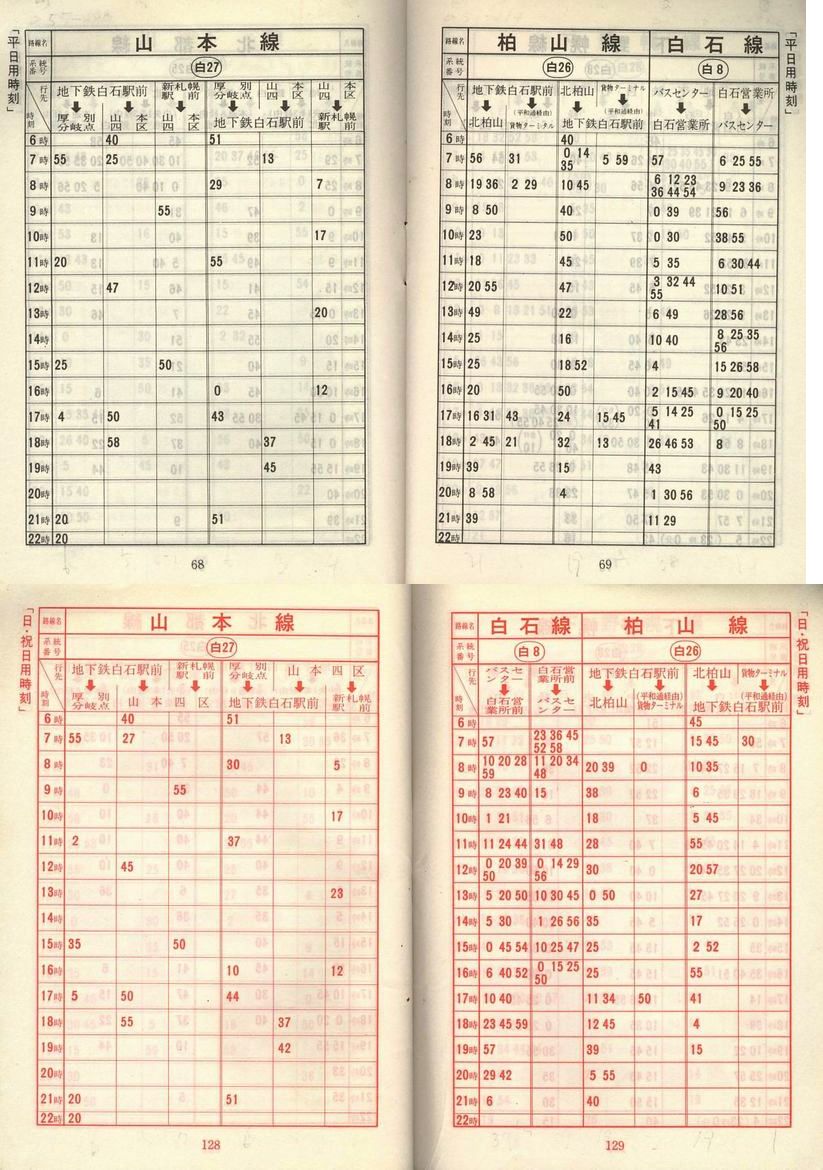 「平日用時刻」
路線名 山本線
系統番号 白27
行先 時刻 地下鉄白石駅前 新札幌駅前 厚別分岐点 山本四区 山本四区
厚別分岐点 山本四区 山本四区 地下鉄白石駅前 新札幌駅前
6時 40 51
7時 55 25 13
8時 29 7
9時 55
10時 17
11時 20 55
12時 47
13時 20
14時
15時 25 50
16時 0 12
17時 4 50 43
18時 58 37
19時 45
20時
21時 20 51
22時 20
68
「平日用時刻」
路線名 柏山線 白石線
系統番号 白26 白8
行先 時刻 地下鉄白石駅前 北柏山 貨物ターミナル バスセンター 白石営業所
北柏山 (平和通経由)貨物ターミナル (平和通経由) 地下鉄白石駅前 白石営業所 バスセンター
6時 40
7時 56 31 0 14 35 5 59 57 6 25 55
8時 19 36 2 29 10 45 6 12 23 36 44 54 9 23 36
9時 8 50 40 0 39 56
10時 23 50 0 30 38 55
11時 18 45 5 35 6 30 44
12時 20 55 47 3 32 44 55 10 51
13時 49 22 6 49 28 56
14時 25 16 10 40 8 25 35 56
15時 25 18 52 4 15 26 58
16時 20 50 2 15 45 9 20 40
17時 16 31 43 24 15 45 5 14 25 41 0 15 25 50
18時 2 45 21 32 13 26 46 53 8
19時 39 15 43
20時 8 58 4 1 30 56
21時 39 11 29
22時
69
「日・祝日用時刻」
路線名 山本線
系統番号 白27
行先 時刻 地下鉄白石駅前 新札幌駅前 厚別分岐点 山本四区
厚別分岐点 山本四区 地下鉄白石駅前 新札幌駅前
6時 40 51
7時 55 27 13
8時 30 5
9時 55
10時 17
11時 2 37
12時 45
13時 23
14時
15時 35 50
16時 10 12
17時 5 50 44
18時 55 37
19時 42
20時
21時 20 51
22時 20
128
「日・祝日用時刻」
路線名 白石線 柏山線
系統番号 白8 白26
行先 時刻 バスセンター 白石営業所前 地下鉄白石駅前 北柏山 貨物ターミナル
白石営業所前 バスセンター 北柏山 (平和通経由)貨物ターミナル (平和通経由) 地下鉄白石駅前
6時 45
7時 57 23 36 45 52 58 15 45 30
8時 10 20 28 59 11 20 34 48 20 39 0 10 35
9時 8 23 40 15 38 6
10時 1 21 18 5 45
11時 11 24 44 31 48 28 55
12時 0 20 39 50 0 14 29 56 30 20 57
13時 5 20 50 10 30 45 0 50 27
14時 5 30 1 26 56 35 17
15時 0 45 54 10 25 47 25 2 52
16時 6 40 52 0 15 25 50 25 55
17時 10 40 11 34 50 41
18時 23 45 59 12 45 4
19時 57 39 15
20時 29 42 5 55
21時 6 40
22時
129